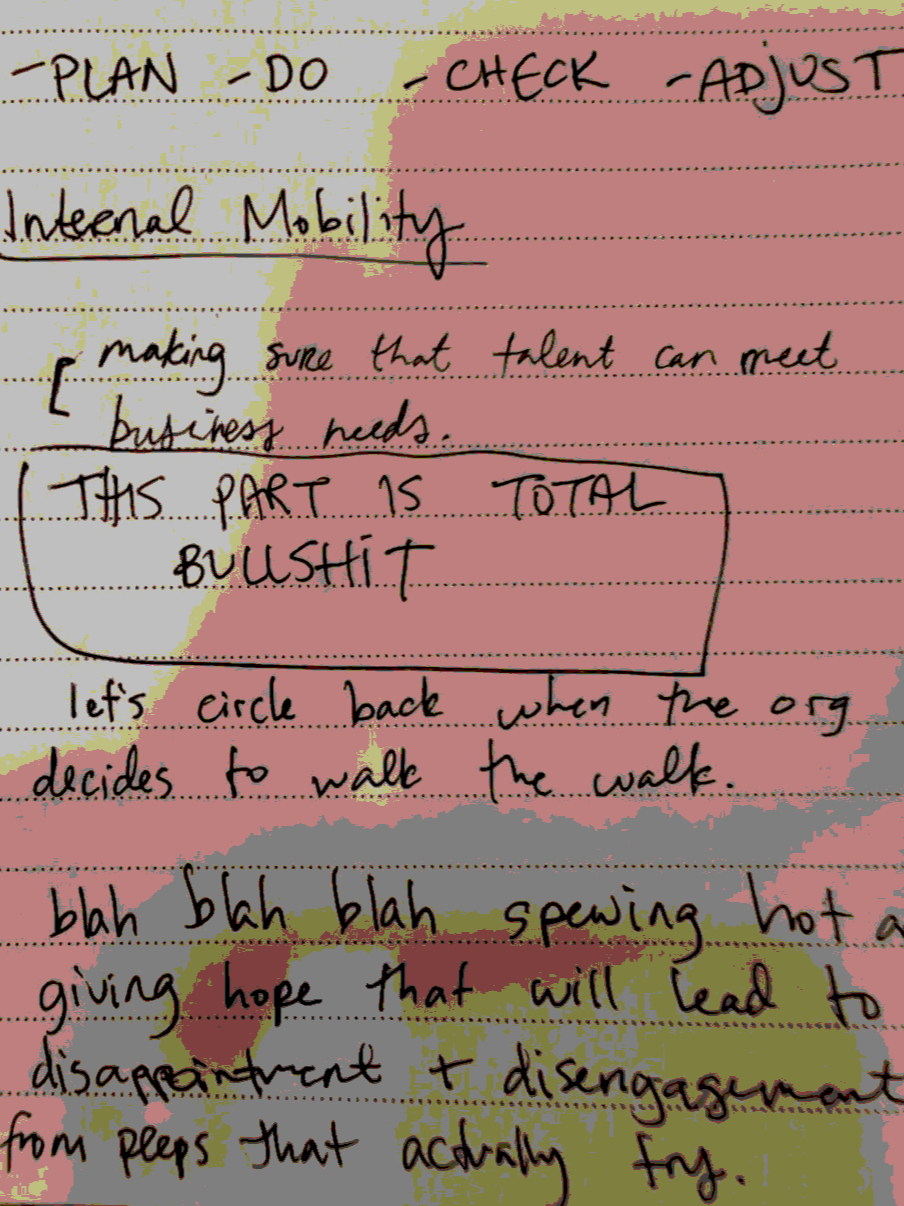 -PLAN -DO -CHECK -ADJUST
Internal Mobility
making sure that talent can meet
business needs.
THIS PART IS TOTAL
BULLSHIT
let's circle back when the org
decides to walk the walk.
blah blah blah spewing hot a
giving hope that will lead to
disappointment + disengagement
from peeps that actually try.